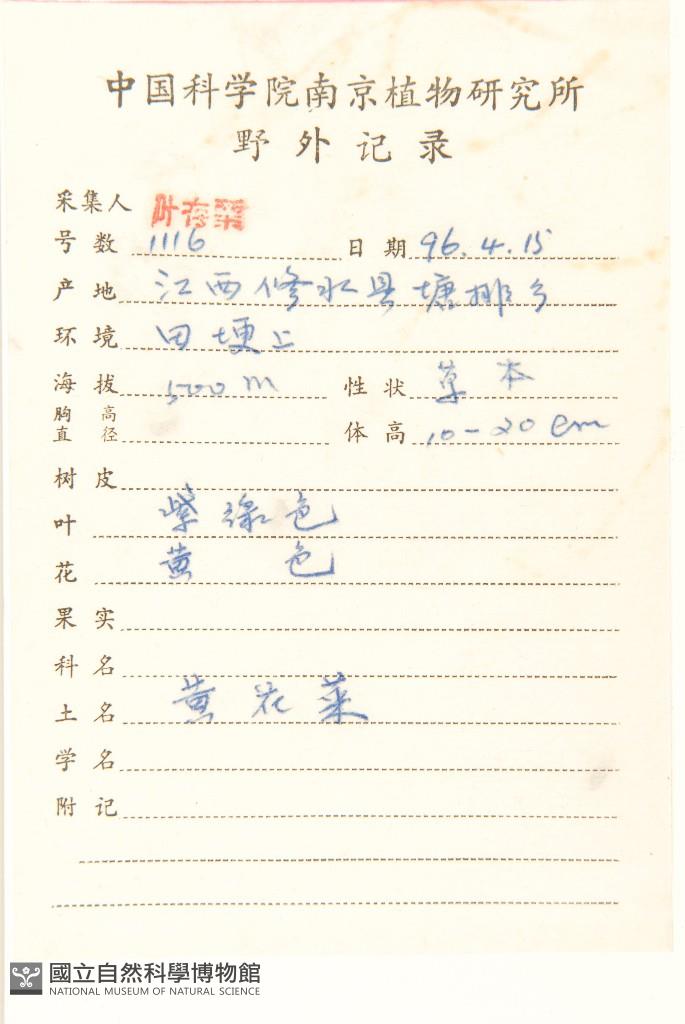 中国科学院南京植物研究所
野外记录
采集人 叶存粟
号数 1116 日期 96.4.15
产地 江西修水县塘排乡
环境 田埂上
海拔 500m 性状 草本
胸高直径 体高 10-20cm
树皮
叶 紫绿色
花 黄色
果实
科名
土名 黄花菜
学名
附记
國立自然科學博物館
NATIONAL MUSEUM OF NATURAL SCIENCE